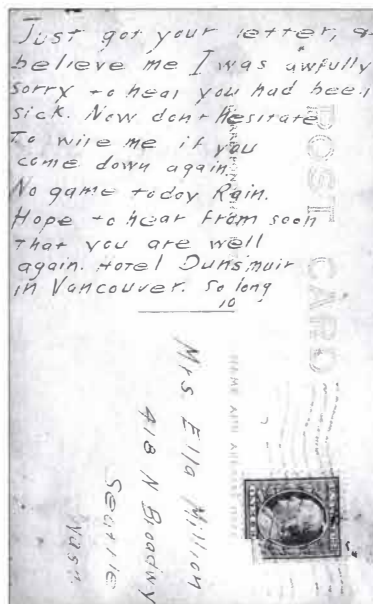 Just got your letter, a
believe me I was awfully
sorry to hear you had been
sick. Now don't Hesitate
To wire me if you
come down again.
No game today Rain.
Hope to hear from soon
That you are well
again. Hotel Dunsmuir
in Vancouver. So long
10
POST CARD
NAME AND ADDRESS HERE
Mrs. Ella Million
418 N Broadwy
Seattle
Wash